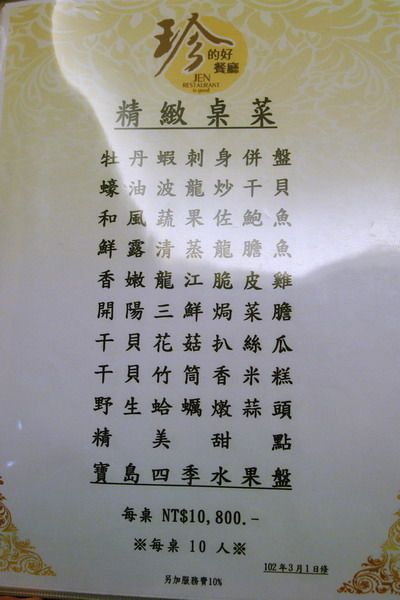 珍
的好
餐廳
JEN
RESTAURANT
is good
精緻桌菜
牡丹蝦刺身併盤
蠔油波龍炒干貝
和風蔬果佐鮑魚
鮮露清蒸龍膽魚
香嫩龍江脆皮雞
開陽三鮮焗菜膽
干貝花菇扒絲瓜
干貝竹筒香米糕
野生蛤蠣燉蒜頭
精美甜點
寶島四季水果盤
每桌 NT$10,800.-
※每桌 10 人※
102年3月1日修
另加服務費10%